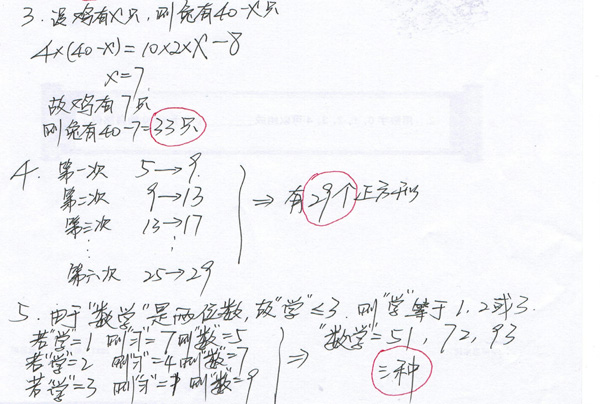 3. 设鸡有x只，则兔有40-x只
4×(40-x)=10×2×x-8
x=7
故鸡有7只
则兔有40-7=33只
4. 第一次 5→9
第二次 9→13
第三次 13→17
⋮ ⋮
第六次 25→29
⇒ 有29个正方形
5. 由于"数学"是两位数，故"学"≤3. 则"学"等于1, 2或3.
若"学"=1 则"习"=7 则"数"=5
若"学"=2 则"习"=4 则"数"=7
若"学"=3 则"习"=1 则"数"=9
⇒ "数学"=51, 72, 93
三种